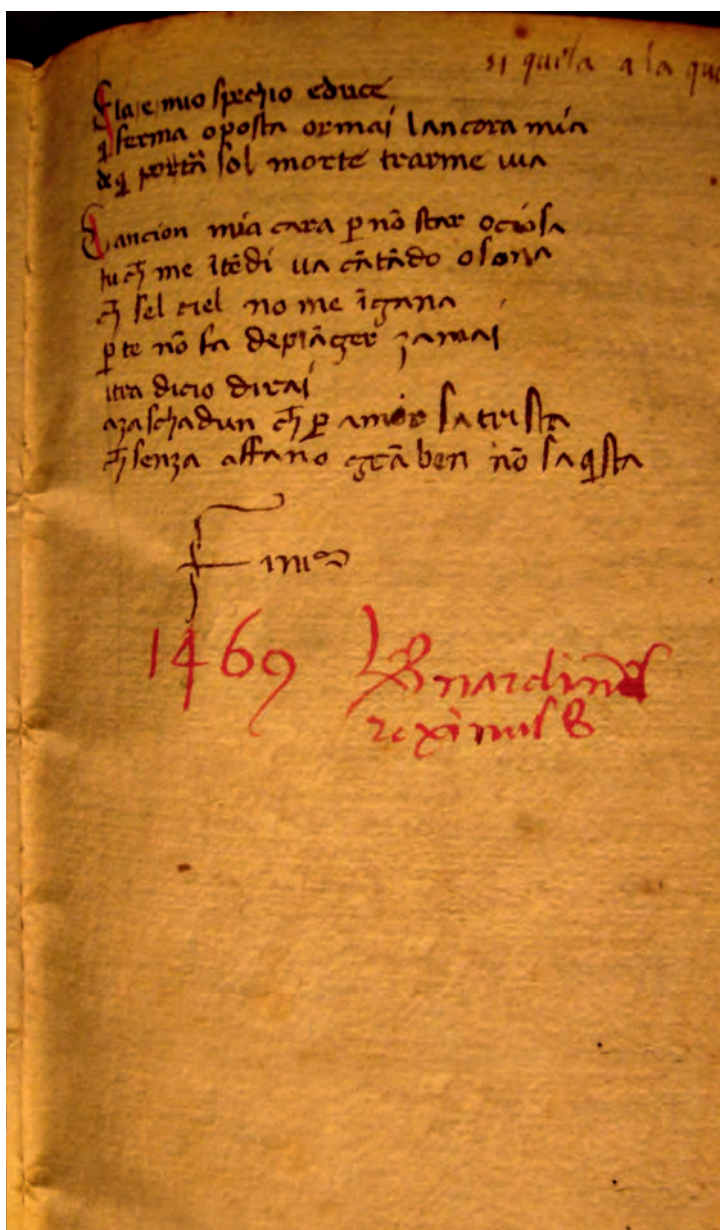 si quila a la qu
Ela e mio spechio e duce
q̃ ferma o posta ormai lancora mia
de q̃ portã sol morte trarme uia
Cancion mia cara p̱ nõ star ociosa
tu ch̃ me ĩtẽdi ua cãtãdo o sona
ch̃ sel ciel no me ĩgana
p̱ te nõ fa de piãger zamai
dirai
a zaschadun ch̃ p̱ amor satrista
ch̃ senza affano grã ben nõ saq̃sta
Finis
1469 Bernardinus